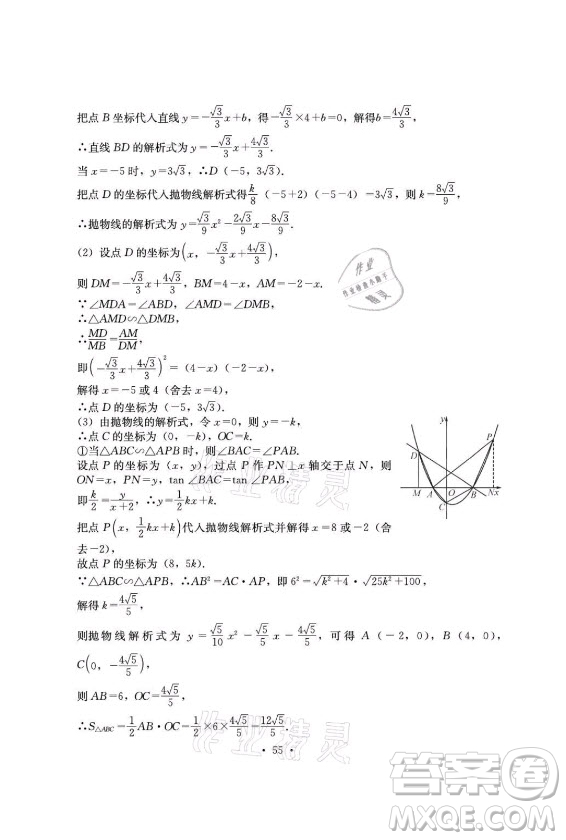 把点 B 坐标代入直线 y=-\frac{\sqrt{3}}{3}x+b, 得-\frac{\sqrt{3}}{3}×4+b=0, 解得b=\frac{4\sqrt{3}}{3},
∴直线 BD 的解析式为 y=-\frac{\sqrt{3}}{3}x+\frac{4\sqrt{3}}{3}.
当 x=-5 时, y=3\sqrt{3}, ∴D(-5, 3\sqrt{3}).
把点 D 的坐标代入抛物线解析式得\frac{k}{8}(-5+2)(-5-4)=3\sqrt{3}, 则 k=\frac{8\sqrt{3}}{9},
∴抛物线的解析式为 y=\frac{\sqrt{3}}{9}x²-\frac{2\sqrt{3}}{9}x-\frac{8\sqrt{3}}{9}.
(2) 设点 D 的坐标为(x, -\frac{\sqrt{3}}{3}x+\frac{4\sqrt{3}}{3}),
则 DM=-\frac{\sqrt{3}}{3}x+\frac{4\sqrt{3}}{3}, BM=4-x, AM=-2-x.
∵∠MDA=∠ABD, ∠AMD=∠DMB,
∴△AMD∽△DMB,
∴\frac{MD}{MB}=\frac{AM}{DM},
即(-\frac{\sqrt{3}}{3}x+\frac{4\sqrt{3}}{3})²=(4-x)(-2-x),
解得 x=-5 或 4 (舍去 x=4),
∴点 D 的坐标为(-5, 3\sqrt{3}).
(3) 由抛物线的解析式, 令 x=0, 则 y=-k,
∴点 C 的坐标为(0, -k), OC=k.
①当△ABC∽△APB 时, 则∠BAC=∠PAB.
设点 P 的坐标为 (x, y), 过点 P 作 PN⊥x 轴交于点 N, 则
ON=x, PN=y, tan∠BAC=tan∠PAB,
即\frac{k}{2}=\frac{y}{x+2}, ∴y=\frac{1}{2}kx+k.
把点 P(x, \frac{1}{2}kx+k)代入抛物线解析式并解得 x=8 或-2 (舍
去-2),
故点 P 的坐标为 (8, 5k).
∵△ABC∽△APB, ∴AB²=AC·AP, 即 6²=\sqrt{k²+4}·\sqrt{25k²+100},
解得 k=\frac{4\sqrt{5}}{5},
则抛物线解析式为 y=\frac{\sqrt{5}}{10}x²-\frac{\sqrt{5}}{5}x-\frac{4\sqrt{5}}{5}, 可得 A(-2, 0), B(4, 0),
C(0, -\frac{4\sqrt{5}}{5}),
则 AB=6, OC=\frac{4\sqrt{5}}{5},
∴S△ABC=\frac{1}{2}AB·OC=\frac{1}{2}×6×\frac{4\sqrt{5}}{5}=\frac{12\sqrt{5}}{5}.
y
P
D
M A O B Nx
C
作业
作业精灵
作业精灵
· 55 ·
答案圈
MXQE.COM